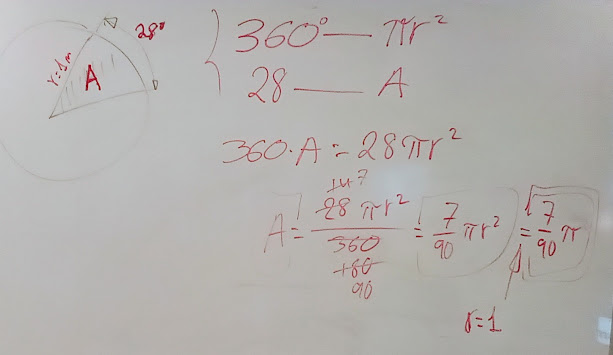 28º
r=1m
A
360° — πr²
28 — A
360·A = 28πr²
14 7
A = 28 πr² / 360 = 7/90 πr² = 7/90 π
180
90
r=1